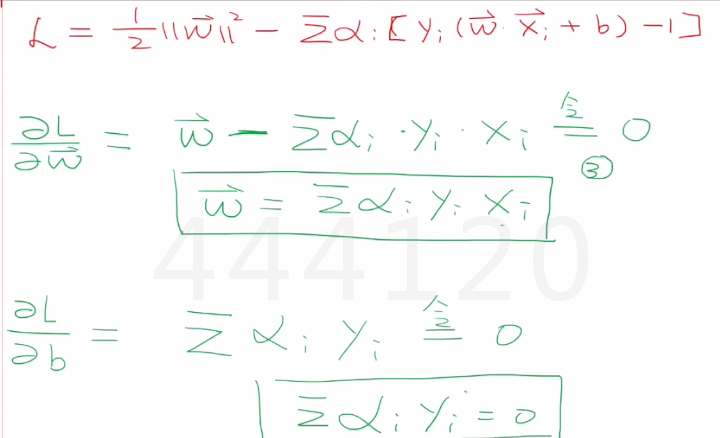 L = 1/2 ||w⃗||² - Σαᵢ[yᵢ(w⃗·x⃗ᵢ + b) -1]
∂L/∂w⃗ = w⃗ - Σαᵢ·yᵢ·xᵢ 令= 0
③
w⃗ = Σαᵢyᵢxᵢ
444120
∂L/∂b = Σαᵢyᵢ 令= 0
Σαᵢyᵢ = 0